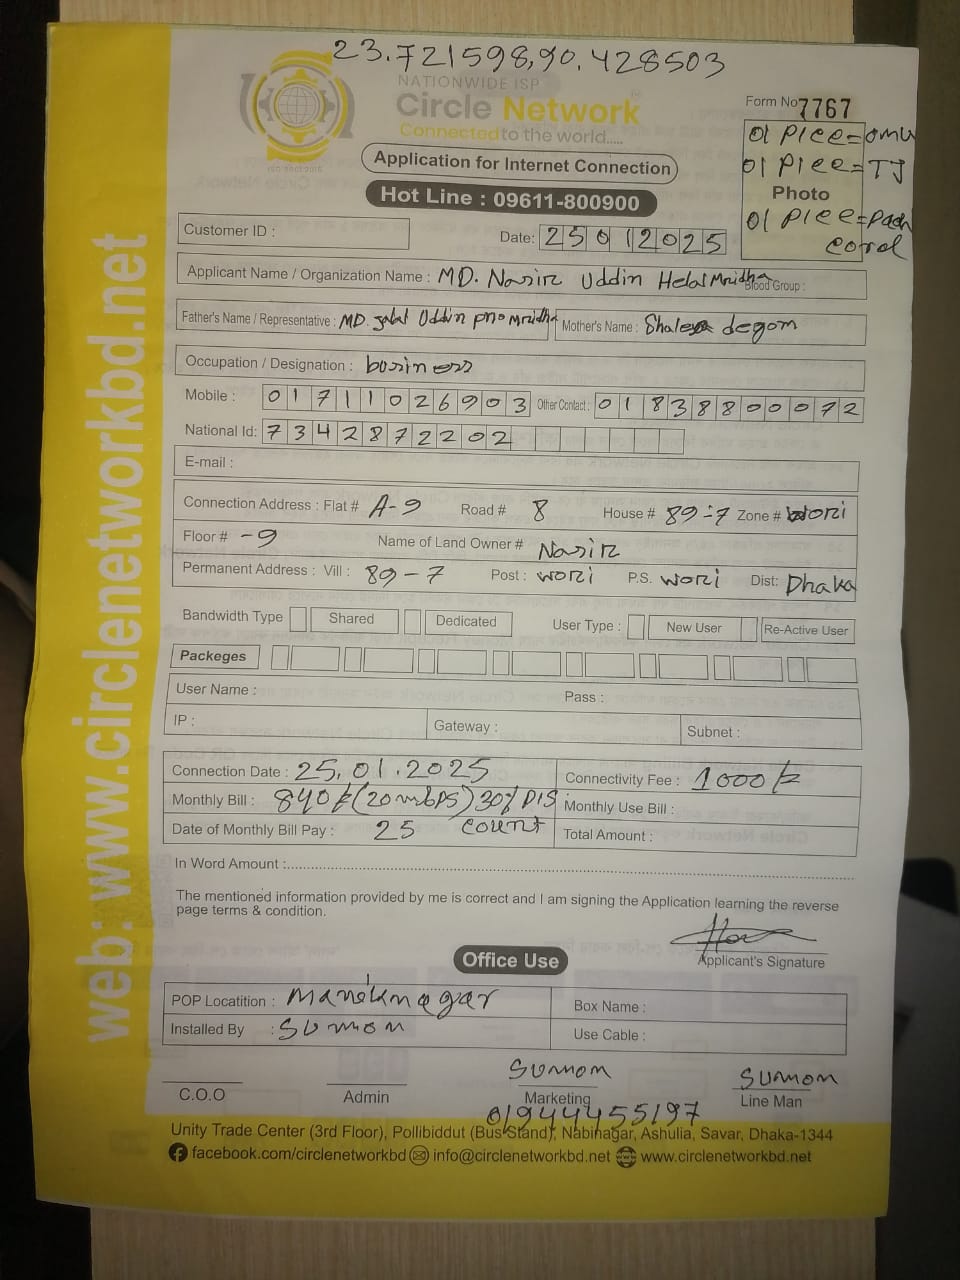 23.721598,90.428503
NATIONWIDE ISP
Circle Network
Connected to the world.....
ISO 9001:2015
Form No 7767
01 PIee=omu
01 PIee=TJ
Photo
01 PIee=pach
corol
Application for Internet Connection
Hot Line : 09611-800900
Customer ID :
Date: 25012025
Applicant Name / Organization Name : MD. Nasir Uddin Helal Mridha Blood Group :
Father's Name / Representative : MD. Jalal Uddin Mridha Mother's Name : degom
Occupation / Designation : businerss
Mobile : 01711026903 Other Contact : 01838800072
National Id: 7342872202
E-mail :
Connection Address : Flat # A-9 Road # 8 House # 89-7 Zone # wori
Floor # -9 Name of Land Owner # Nasir
Permanent Address : Vill : 89-7 Post : wori P.S. wori Dist: Dhaka
Bandwidth Type Shared Dedicated User Type : New User Re-Active User
Packeges
User Name : Pass :
IP : Gateway : Subnet :
Connection Date : 25.01.2025 Connectivity Fee : 1000/k
Monthly Bill : 840/k (20 mbps) 30% DIS Monthly Use Bill :
Date of Monthly Bill Pay : 25 count Total Amount :
In Word Amount :
The mentioned information provided by me is correct and I am signing the Application learning the reverse
page terms & condition.
Applicant's Signature
Office Use
POP Locatition : Maniknagar Box Name :
Installed By : Sumon Use Cable :
Sumon Sumon
C.O.O Admin Marketing Line Man
01944455197
Unity Trade Center (3rd Floor), Pollibiddut (Bus Stand), Nabinagar, Ashulia, Savar, Dhaka-1344
facebook.com/circlenetworkbd info@circlenetworkbd.net www.circlenetworkbd.net
web: www.circlenetworkbd.net